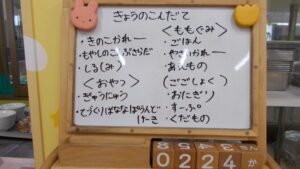 きょうのこんだて
・きのこかれー
・もやしのこんぶさらだ
・しるしみ
〈おやつ〉
・ぎゅうにゅう
・てづくりばななぱうんど
けーき
〈ももぐみ〉
・ごはん
・やさいかれー
・あえもの
(ごごしょく)
・おにぎり
・すーぷ
・くだもの
0 2 2 4 か